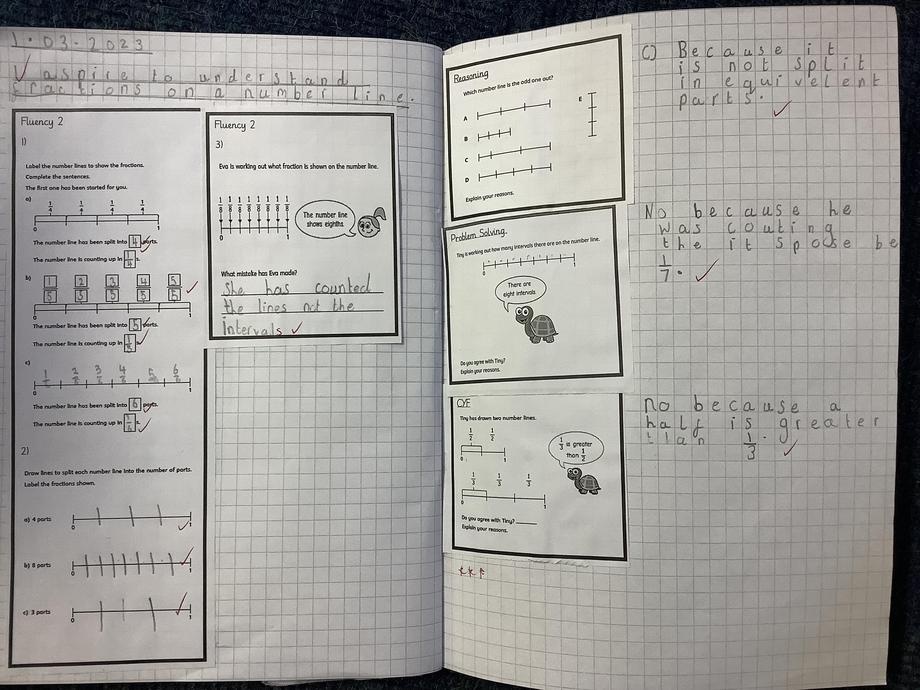 1.03.2023
I aspire to understand
fractions on a number line.
Fluency 2
1)
Label the number lines to show the fractions.
Complete the sentences.
The first one has been started for you.
a)
1/4 1/4 1/4 1/4
0 1
The number line has been split into 4 parts.
The number line is counting up in 1/4 s.
b)
1/5 2/5 3/5 4/5 5/5
0 1
The number line has been split into 5 parts.
The number line is counting up in 1/5 s.
c)
0 1
The number line has been split into 6 parts.
The number line is counting up in 1/6 s.
2)
Draw lines to split each number line into the number of parts.
Label the fractions shown.
a) 4 parts
0 1
b) 8 parts
0 1
c) 3 parts
0 1
Fluency 2
3)
Eva is working out what fraction is shown on the number line.
1/8 1/8 1/8 1/8 1/8 1/8 1/8 1/8
0 1
The number line
shows eighths.
What mistake has Eva made?
She has counted
the lines not the
intervals
Reasoning
Which number line is the odd one out?
A
B
C
D
E
Explain your reasons.
Problem Solving.
Tiny is working out how many intervals there are on the number line.
0
There are
eight intervals
Do you agree with Tiny?
Explain your reasons.
CYF
Tiny has drawn two number lines.
1/2 1/2
0 1
1/3 1/3 1/3
0 1
1/3 is greater
than 1/2
Do you agree with Tiny?
Explain your reasons.
C) Because it
is not split
in equivelent
parts.
No because he
was couting
the it spose be
1/7.
no because a
half is greater
than 1/3.